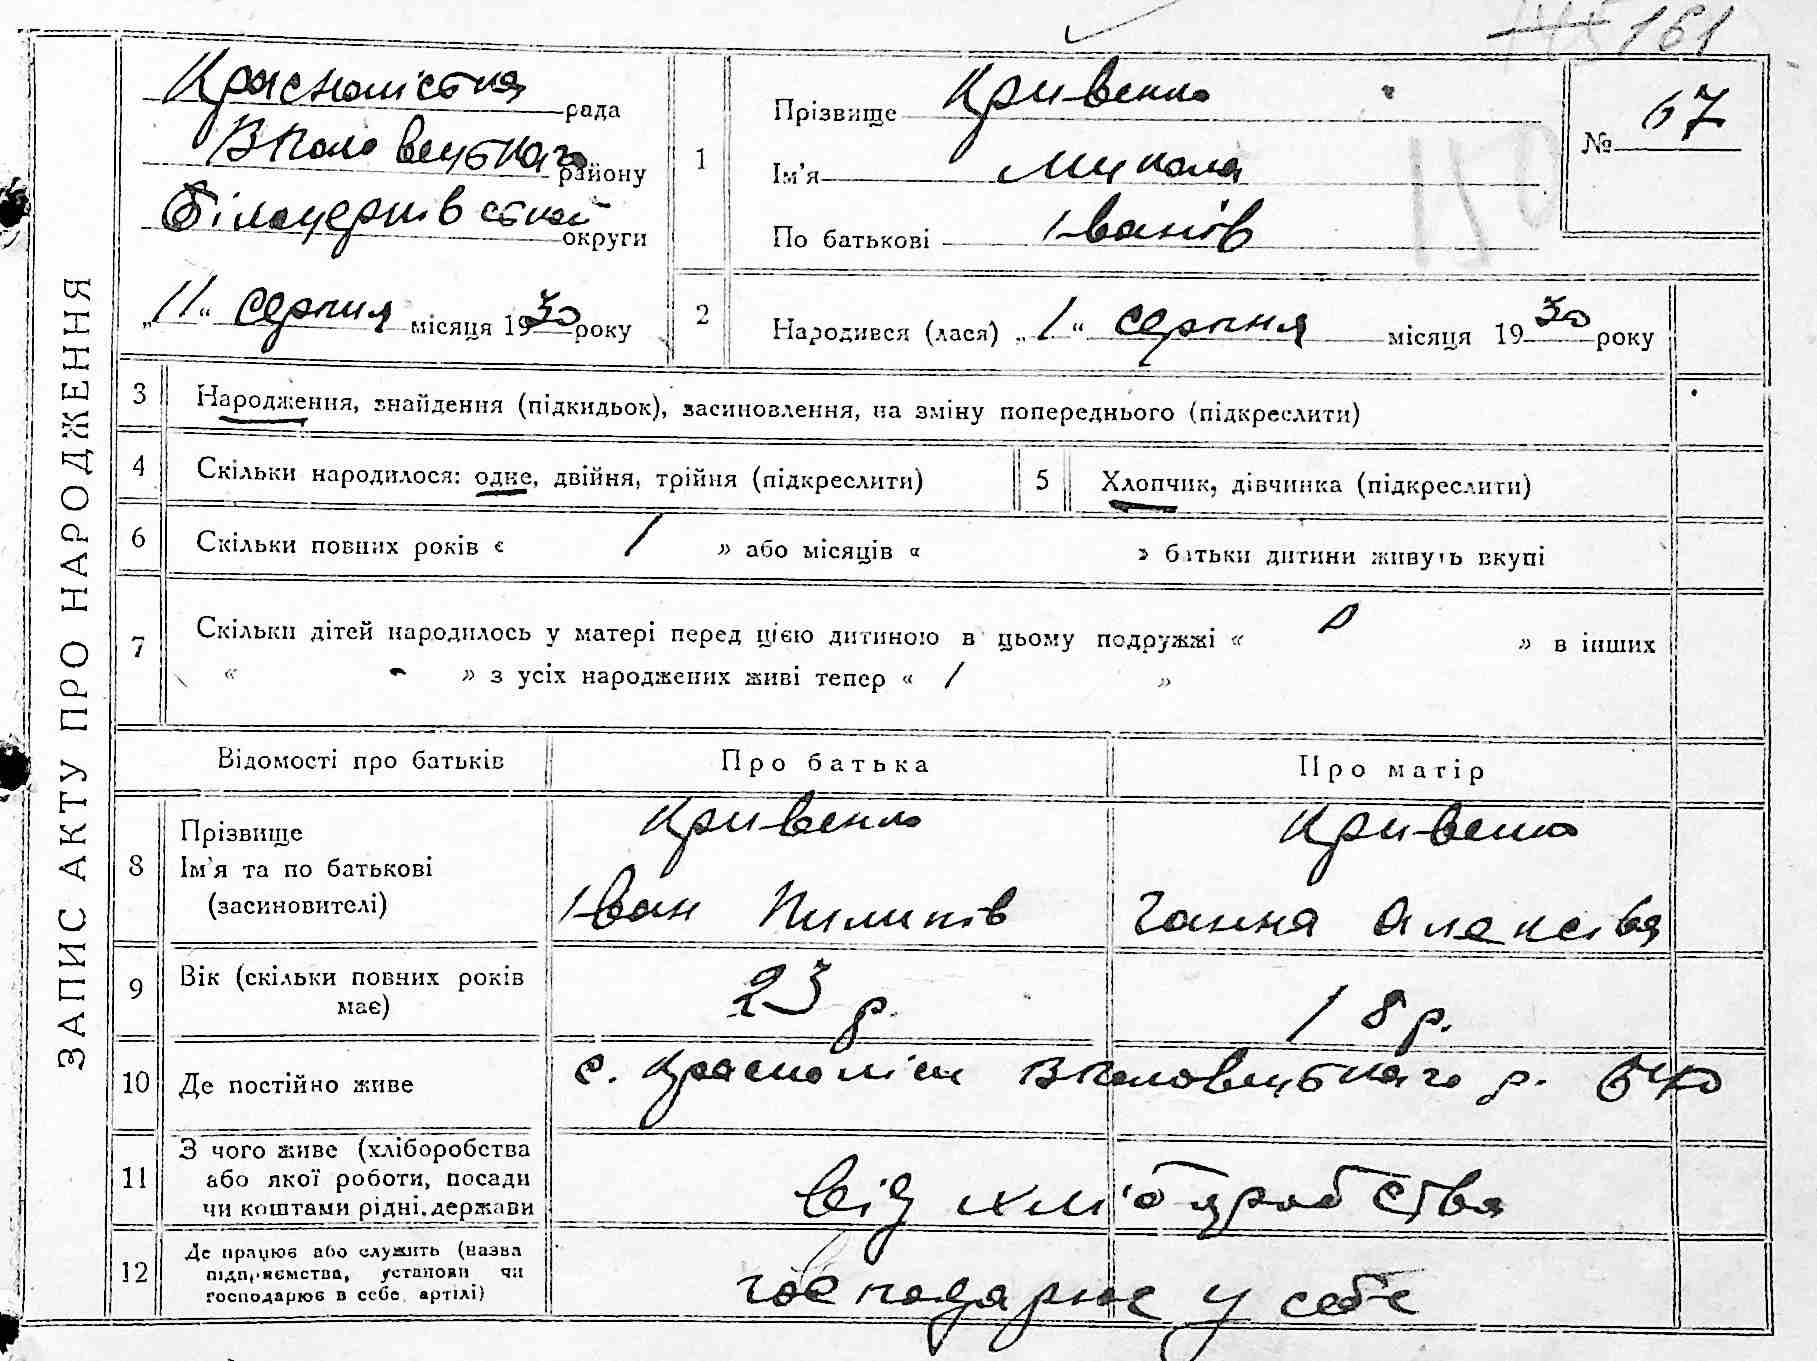 161
ЗАПИС АКТУ ПРО НАРОДЖЕННЯ
Красноліська рада
В Половецького району
Білоцерківської округи
„11“ серпня місяця 1930 року
1
Прізвище Кривенко
Ім'я Микола
По батькові Іванів
№ 67
2
Народився (лася) „1“ серпня місяця 1930 року
3 Народження, знайдення (підкидьок), засиновлення, на зміну попереднього (підкреслити)
4 Скільки народилося: одне, двійня, трійня (підкреслити)
5 Хлопчик, дівчинка (підкреслити)
6 Скільки повних років « 1 » або місяців « » батьки дитини живуть вкупі
7 Скільки дітей народилось у матері перед цією дитиною в цьому подружжі « 0 » в інших
« - » з усіх народжених живі тепер « 1 »
Відомості про батьків Про батька Про матір
8 Прізвище
Ім'я та по батькові
(засиновителі)
Кривенко
Іван Пилипів
Кривенко
Ганна Олексієва
9 Вік (скільки повних років
має)
23 р. 18 р.
10 Де постійно живе с. Красноліси ВПоловецького р. БЦО
11 З чого живе (хліборобства
або якої роботи, посади
чи коштами рідні, держави
від хліборобства
12 Де працює або служить (назва
підприємства, установи чи
господарює в себе, артілі)
господарює у себе